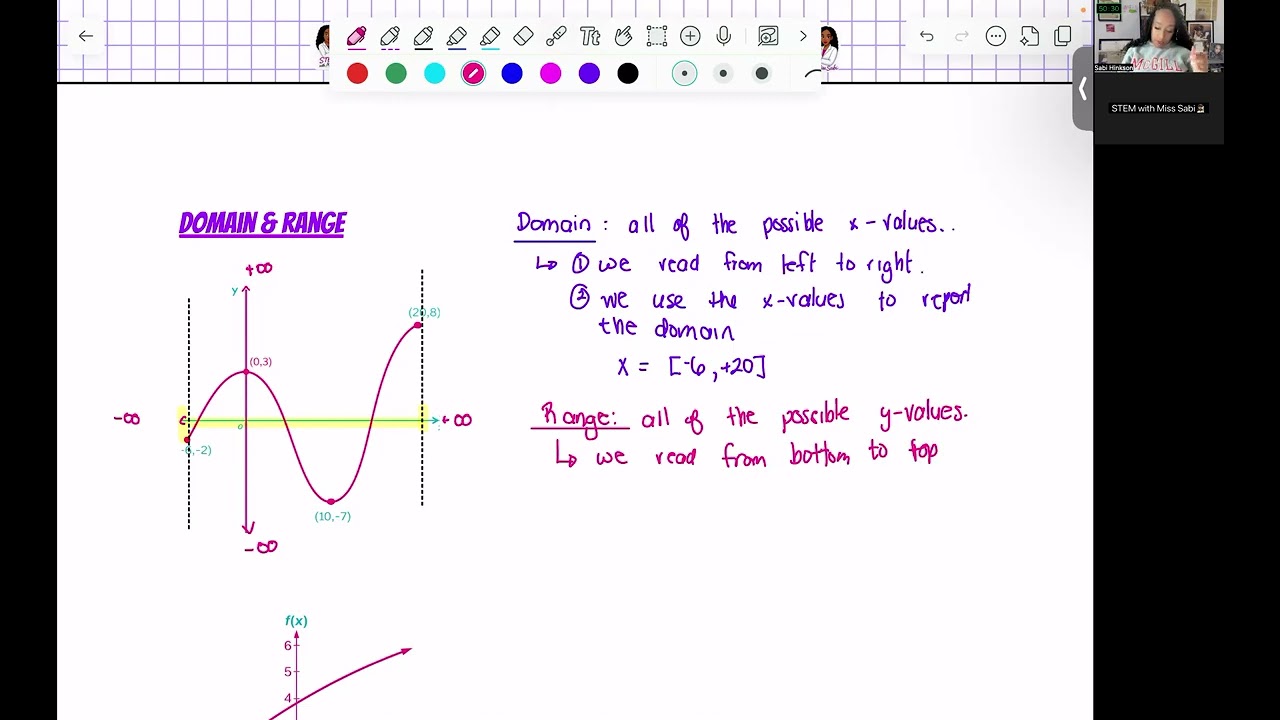 Tt
50 30
Sabi Hinkson
McGILL
STEM with Miss Sabi
DOMAIN & RANGE
+∞
y
(20,8)
(0,3)
-∞
+ ∞
0
-6,-2)
(10,-7)
-∞
Domain : all of the possible x-values..
↳ ① we read from left to right.
② we use the x-values to report
the domain
x = [-6, +20]
Range: all of the possible y-values.
↳ we read from bottom to top
f(x)
6
5
4